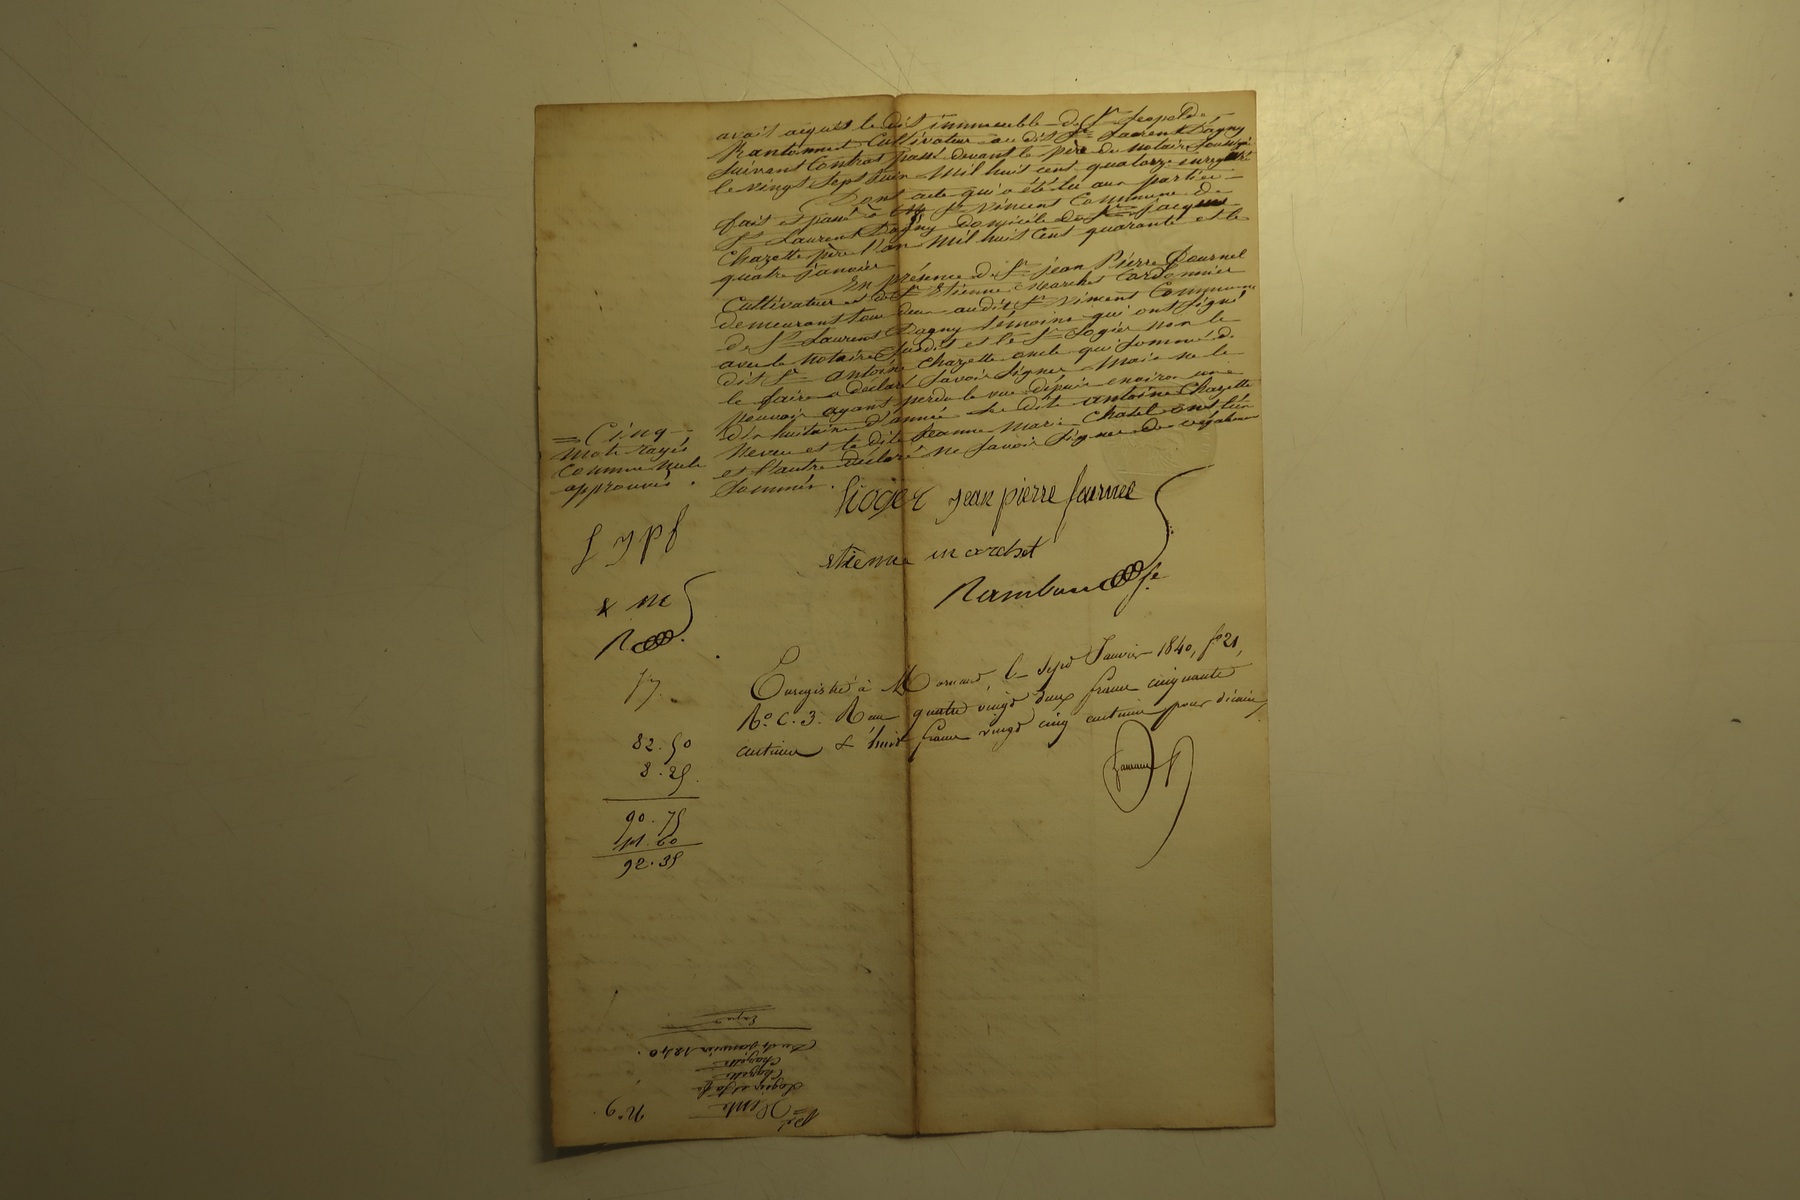 avait acquis le dit immeuble de Sr Leopold
Rantonnet Cultivateur au dit St Laurent Dagny
Suivant Contrat passé devant le père du notaire Soussigné
le vingt Sept Juin Mil huit cent quatorze enregistré
Dont acte qui a été lu aux parties
fait et passé à St Vincent Commune de
St Laurent Dagny Domicile de Sr jacques
Chazette père l'an Mil huit Cent quarante et le
quatre janvier
En présence de Sr jean Pierre fournel
Cultivateur et de Sr Etienne Marchet Cordonnier
demeurant tous deux audit St Vincent Commune
de St Laurent Dagny témoins qui ont Signé
avec le Notaire Susdit et le Sr Logier non le
dit Sr antoine Chazette oncle qui Sommé de
le faire a déclaré Savoir Signer Mais ne le
pouvoir ayant perdu la vue depuis environ une
dix huitaine d'année le dit antoine Chazette
Neveu et la dite Jeanne Marie Chatel ont l'un
et l'autre déclaré ne Savoir Signer de ce
Sommés.
= Cinq
mots rayés
Comme nuls
approuvés.
Jean pierre fournel
f J p f
etienne marchet
e m
Enregistré à Mornant le sept Janvier 1840, fo 21,
Ro C. 3. Reçu quatre vingt deux francs cinquante
centimes & huit francs vingt cinq centimes pour décime
82.50
8.25
90.75
1.60
92.35
No 9.
Vente
Logier et
Chazette
Chazette
Du 4 Janvier 1840.